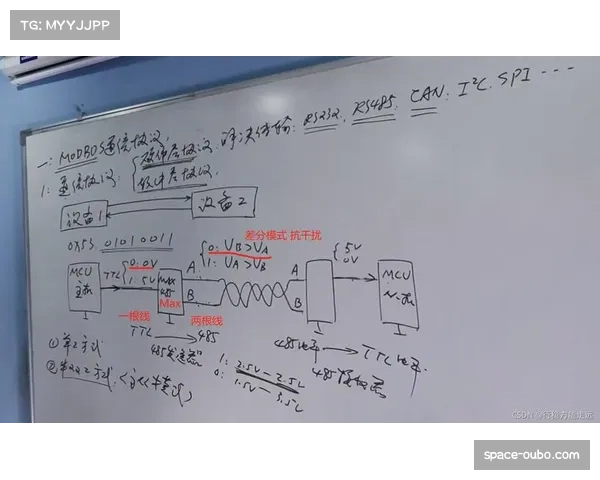 TG: MYYJJPP
一: MODBUS通信协议
解决传输: RS232. RS485. CAN. I²C. SPI ...
1: 通信协议: {硬件层协议.
软件层协议.
设备1
设备2
0X53 01010011
差分模式 抗干扰
0: VB>VA
1: VA>VB
5V
0V
MCU
主机
TTL
0: 0V
1: 5V
Max
485
Max
A
B
A
B
MCU
一根线
两根线
TTL → 485
485电平 → TTL电平
①单工方式
1: 2.5V-
0: 1.5V-
CSDN @行稳方能走远
space-oubo.com